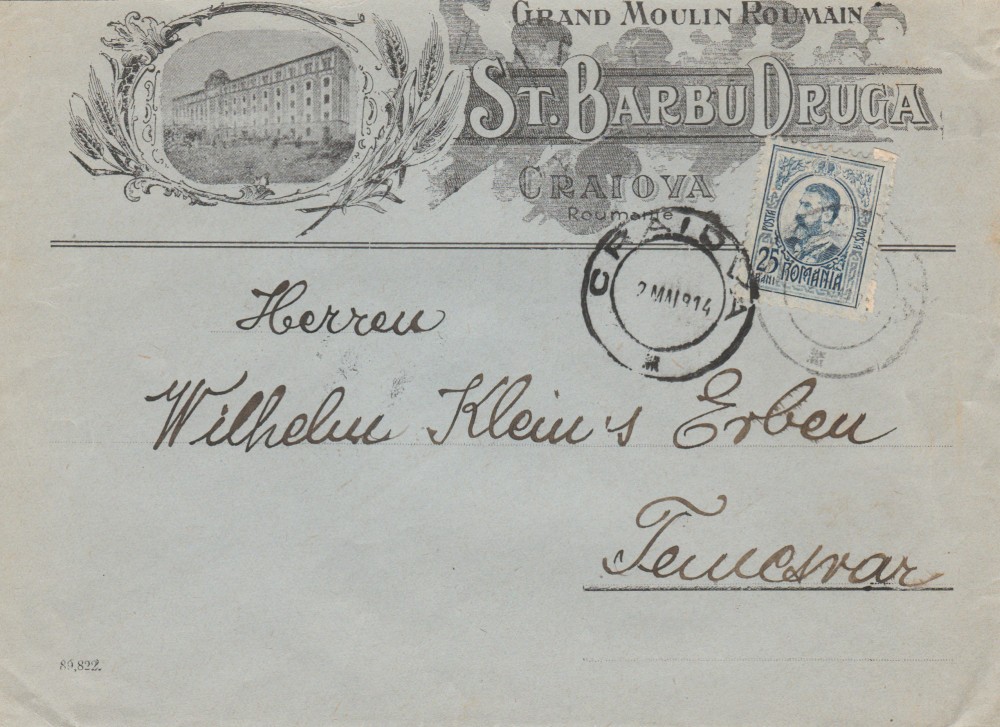 GRAND MOULIN ROUMAIN
ST. BARBU DRUGA
CRAIOVA
Roumanie
POSTA
POSTA
25
BANI
ROMANIA
CRAIOVA
2 MAI 914
Herren
Wilhelm Klein's Erben
Temesvar
80,822.